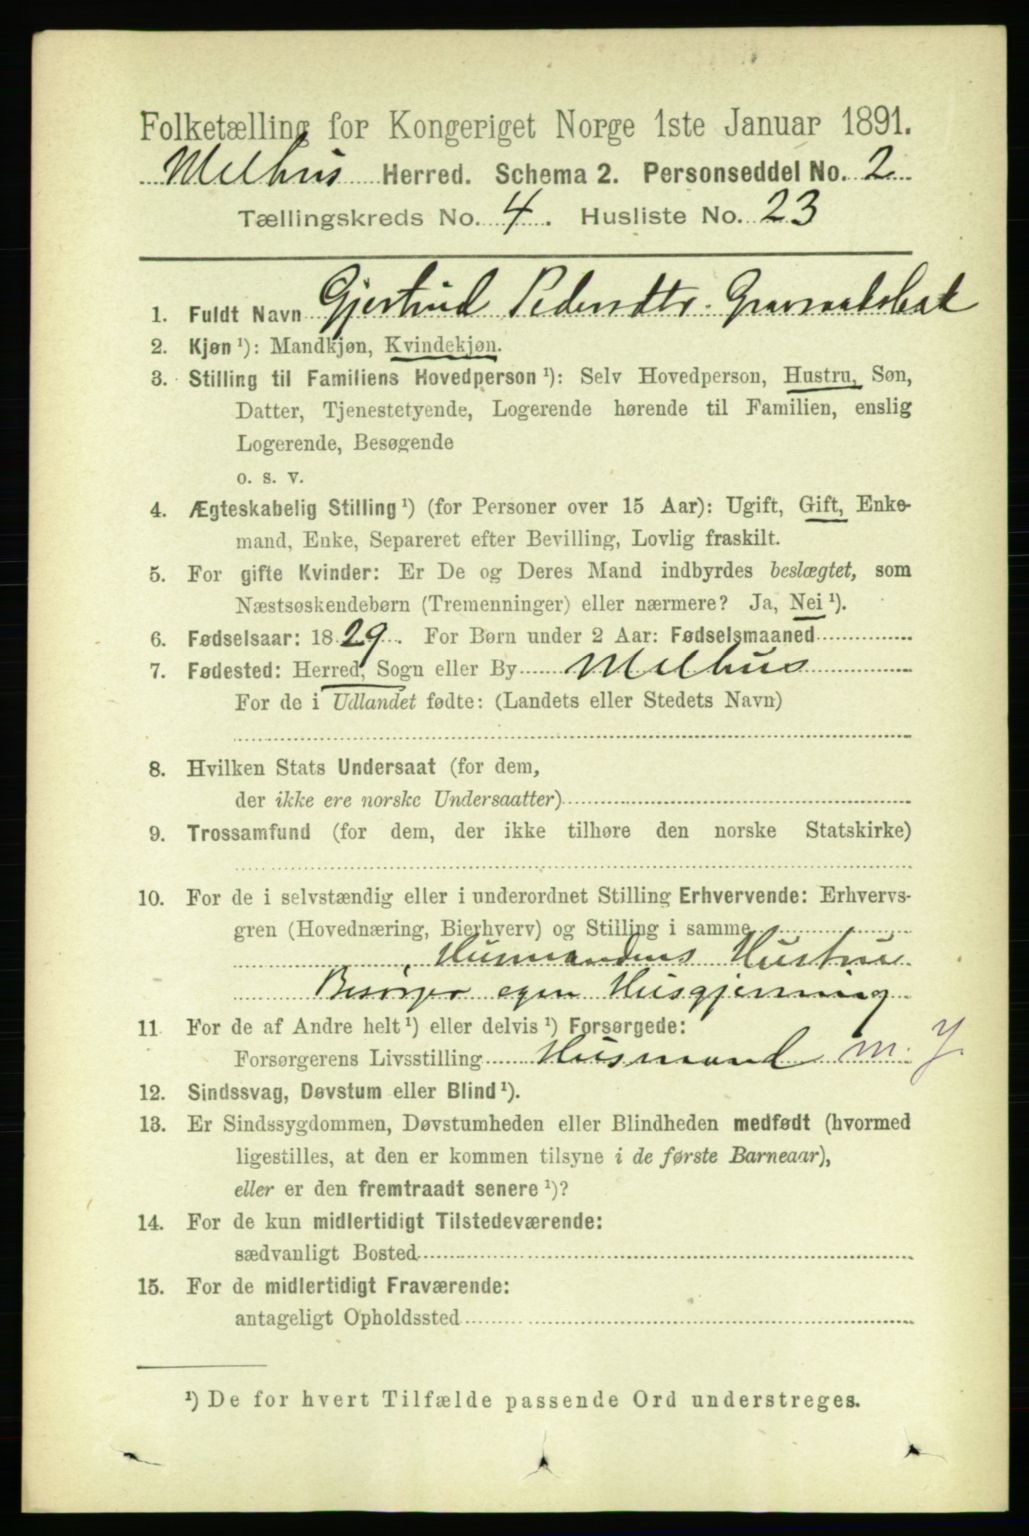 Folketælling for Kongeriget Norge 1ste Januar 1891.
Melhus Herred. Schema 2. Personseddel No. 2
Tællingskreds No. 4. Husliste No. 23
1. Fuldt Navn Gjertrud Pedersdtr.
2. Kjøn ¹): Mandkjøn, Kvindekjøn.
3. Stilling til Familiens Hovedperson ¹): Selv Hovedperson, Hustru, Søn,
Datter, Tjenestetyende, Logerende hørende til Familien, enslig
Logerende, Besøgende
o. s. v.
4. Ægteskabelig Stilling ¹) (for Personer over 15 Aar): Ugift, Gift, Enke-
mand, Enke, Separeret efter Bevilling, Lovlig fraskilt.
5. For gifte Kvinder: Er De og Deres Mand indbyrdes beslægtet, som
Næstsøskendebørn (Tremenninger) eller nærmere? Ja, Nei ¹).
6. Fødselsaar: 1829. For Børn under 2 Aar: Fødselsmaaned
7. Fødested: Herred, Sogn eller By Melhus
For de i Udlandet fødte: (Landets eller Stedets Navn)
8. Hvilken Stats Undersaat (for dem,
der ikke ere norske Undersaatter)
9. Trossamfund (for dem, der ikke tilhøre den norske Statskirke)
10. For de i selvstændig eller i underordnet Stilling Erhvervende: Erhvervs-
gren (Hovednæring, Bierhverv) og Stilling i samme
Husmandens Hustru
Besørger egen Husgjerning
11 For de af Andre helt ¹) eller delvis ¹) Forsørgede:
Forsørgerens Livsstilling Husmand m. J.
12. Sindssvag, Døvstum eller Blind ¹).
13. Er Sindssygdommen, Døvstumheden eller Blindheden medfødt (hvormed
ligestilles, at den er kommen tilsyne i de første Barneaar),
eller er den fremtraadt senere ¹)?
14. For de kun midlertidigt Tilstedeværende:
sædvanligt Bosted
15. For de midlertidigt Fraværende:
antageligt Opholdssted
¹) De for hvert Tilfælde passende Ord understreges.